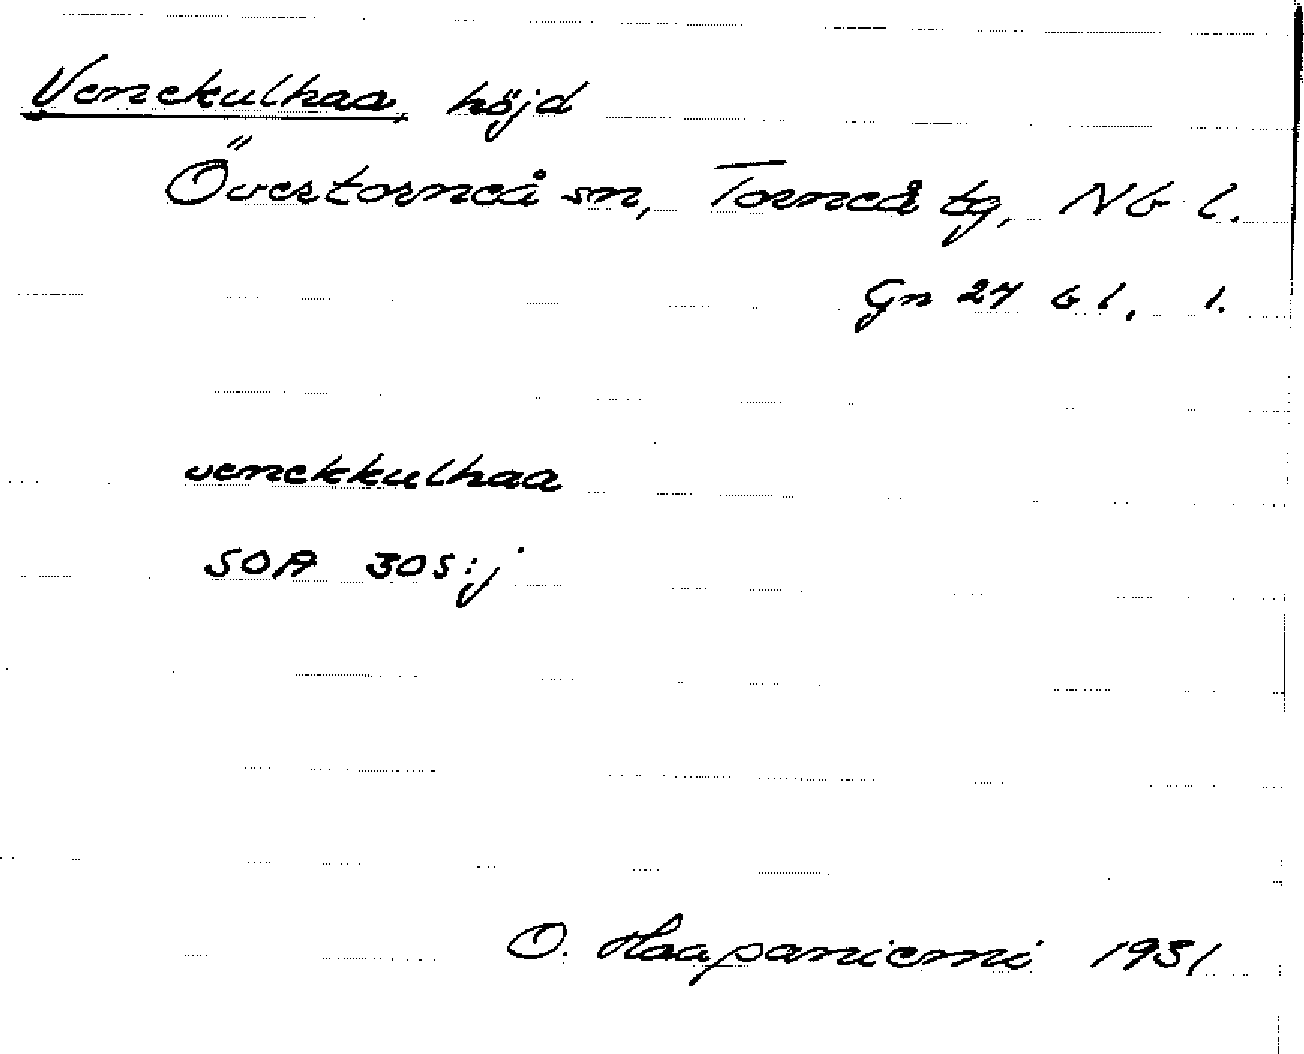 Venekulhaa, höjd
Övertorneå sn, Torneå tg, Nb l.
Gn 27 bl. 1.
venekkulhaa
SOA 305:j
O. Haapaniemi 1931